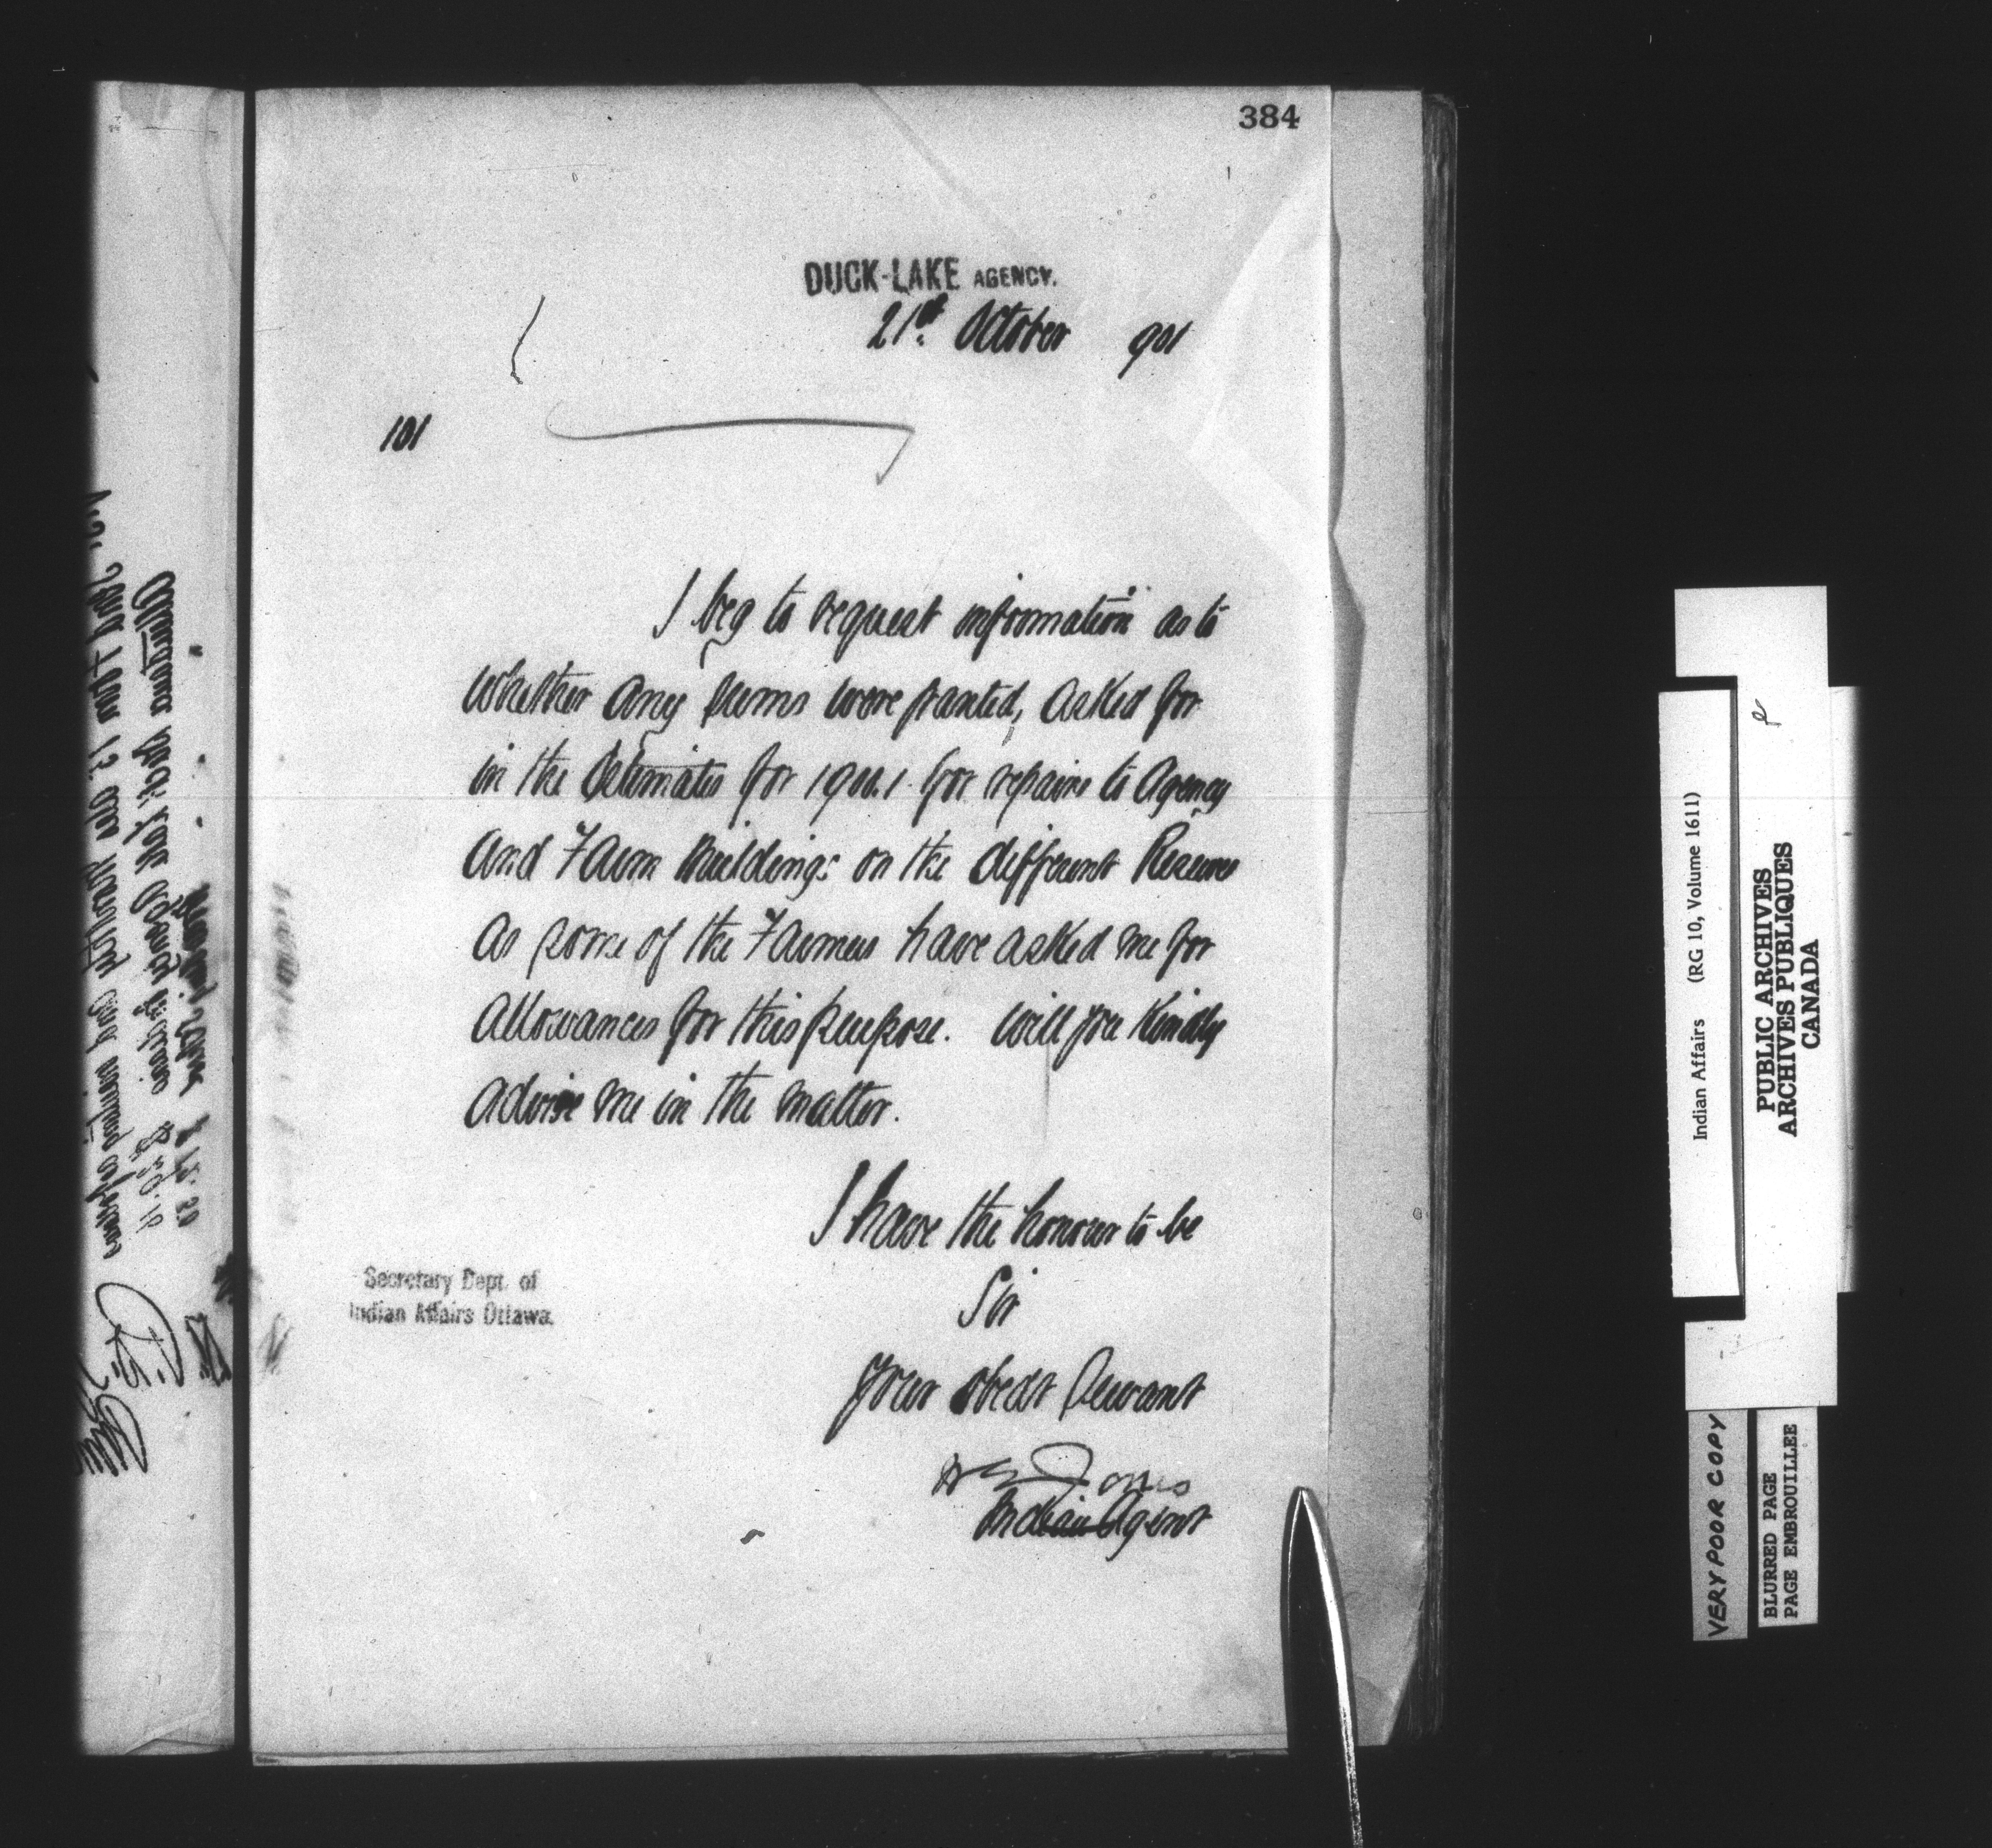 384
DUCK-LAKE AGENCY.
21st October 901
101
I beg to request information as to
whether any sums were granted, asked for
in the Estimates for 1900.1 for repairs to Agency
and Farm Buildings on the different Reserves
as some of the Farmers have asked me for
allowances for this purpose. Will you Kindly
advise me in the matter.
I have the honour to be
Sir
Your obedt Servant
Jones
Indian Agent
Secretary Dept. of
Indian Affairs Ottawa.
Indian Affairs (RG 10, Volume 1611)
PUBLIC ARCHIVES
ARCHIVES PUBLIQUES
CANADA
VERY POOR COPY
BLURRED PAGE
PAGE EMBROUILLEE